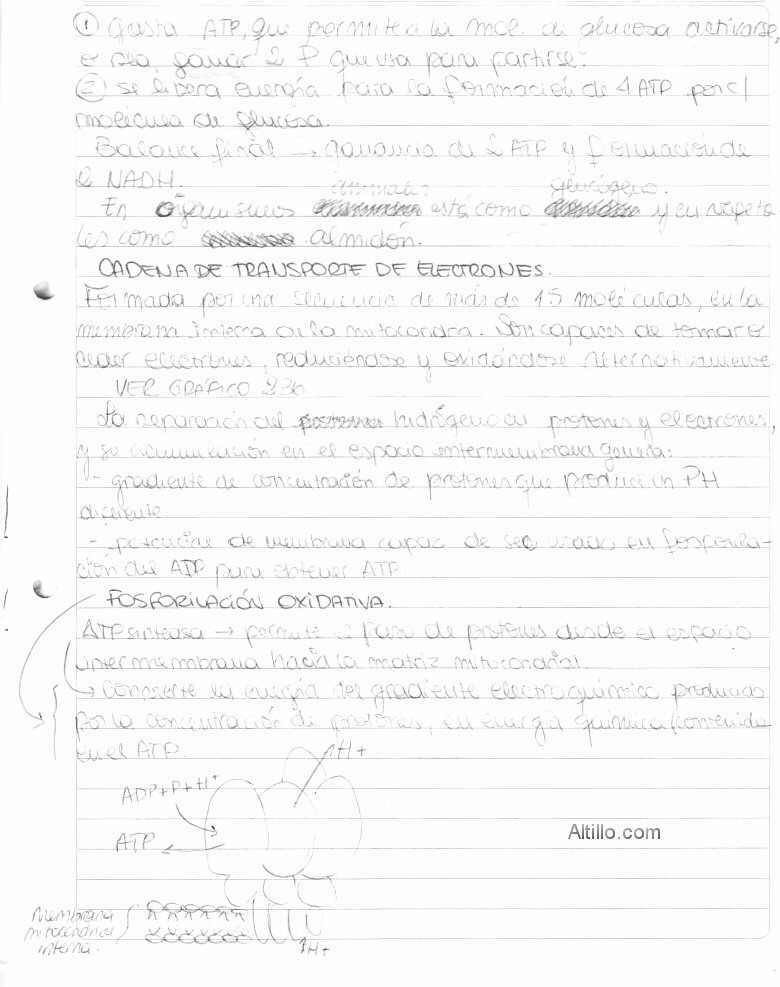 ① Gasta ATP, que permite a la mol. de glucosa activarse,
o sea, ganar 2 P que usa para partirse.
② Se libera energía para la formación de 4 ATP por c/
molécula de glucosa.
Balance final → ganancia de 2 ATP y formación de
2 NADH.
animales glucógeno.
En organismos está como y en vegeta
les como almidón.
CADENA DE TRANSPORTE DE ELECTRONES.
Formada por una secuencia de más de 15 moléculas, en la
membrana interna de la mitocondria. Son capaces de tomar o
ceder electrones, reduciéndose y oxidándose alternativamente
VER GRÁFICO 236
La separación del hidrógeno en protones y electrones,
y su acumulación en el espacio intermembrana genera:
- gradiente de concentración de protones que produce un PH
diferente
- potencial de membrana capaz de ser usado en fosforila-
ción del ADP para obtener ATP
FOSFORILACIÓN OXIDATIVA.
ATP sintasa → permite el paso de protones desde el espacio
intermembrana hacia la matriz mitocondrial.
→ Convierte la energía del gradiente electroquímico producido
por la concentración de protones, en energía química contenida
en el ATP.
H+
ADP+P+H+
ATP
Altillo.com
Membrana
mitocondrial
interna.
H+